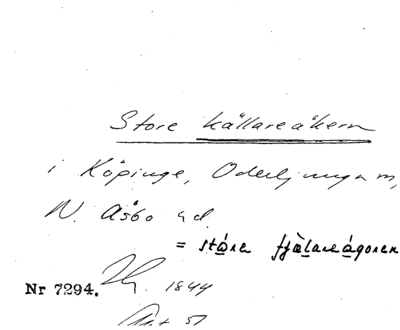 Store källareåkern
i Köpinge, Oderljunga m,
N. Åsbo hd
= stóre fjälareágoren
Nr 7294.
1844